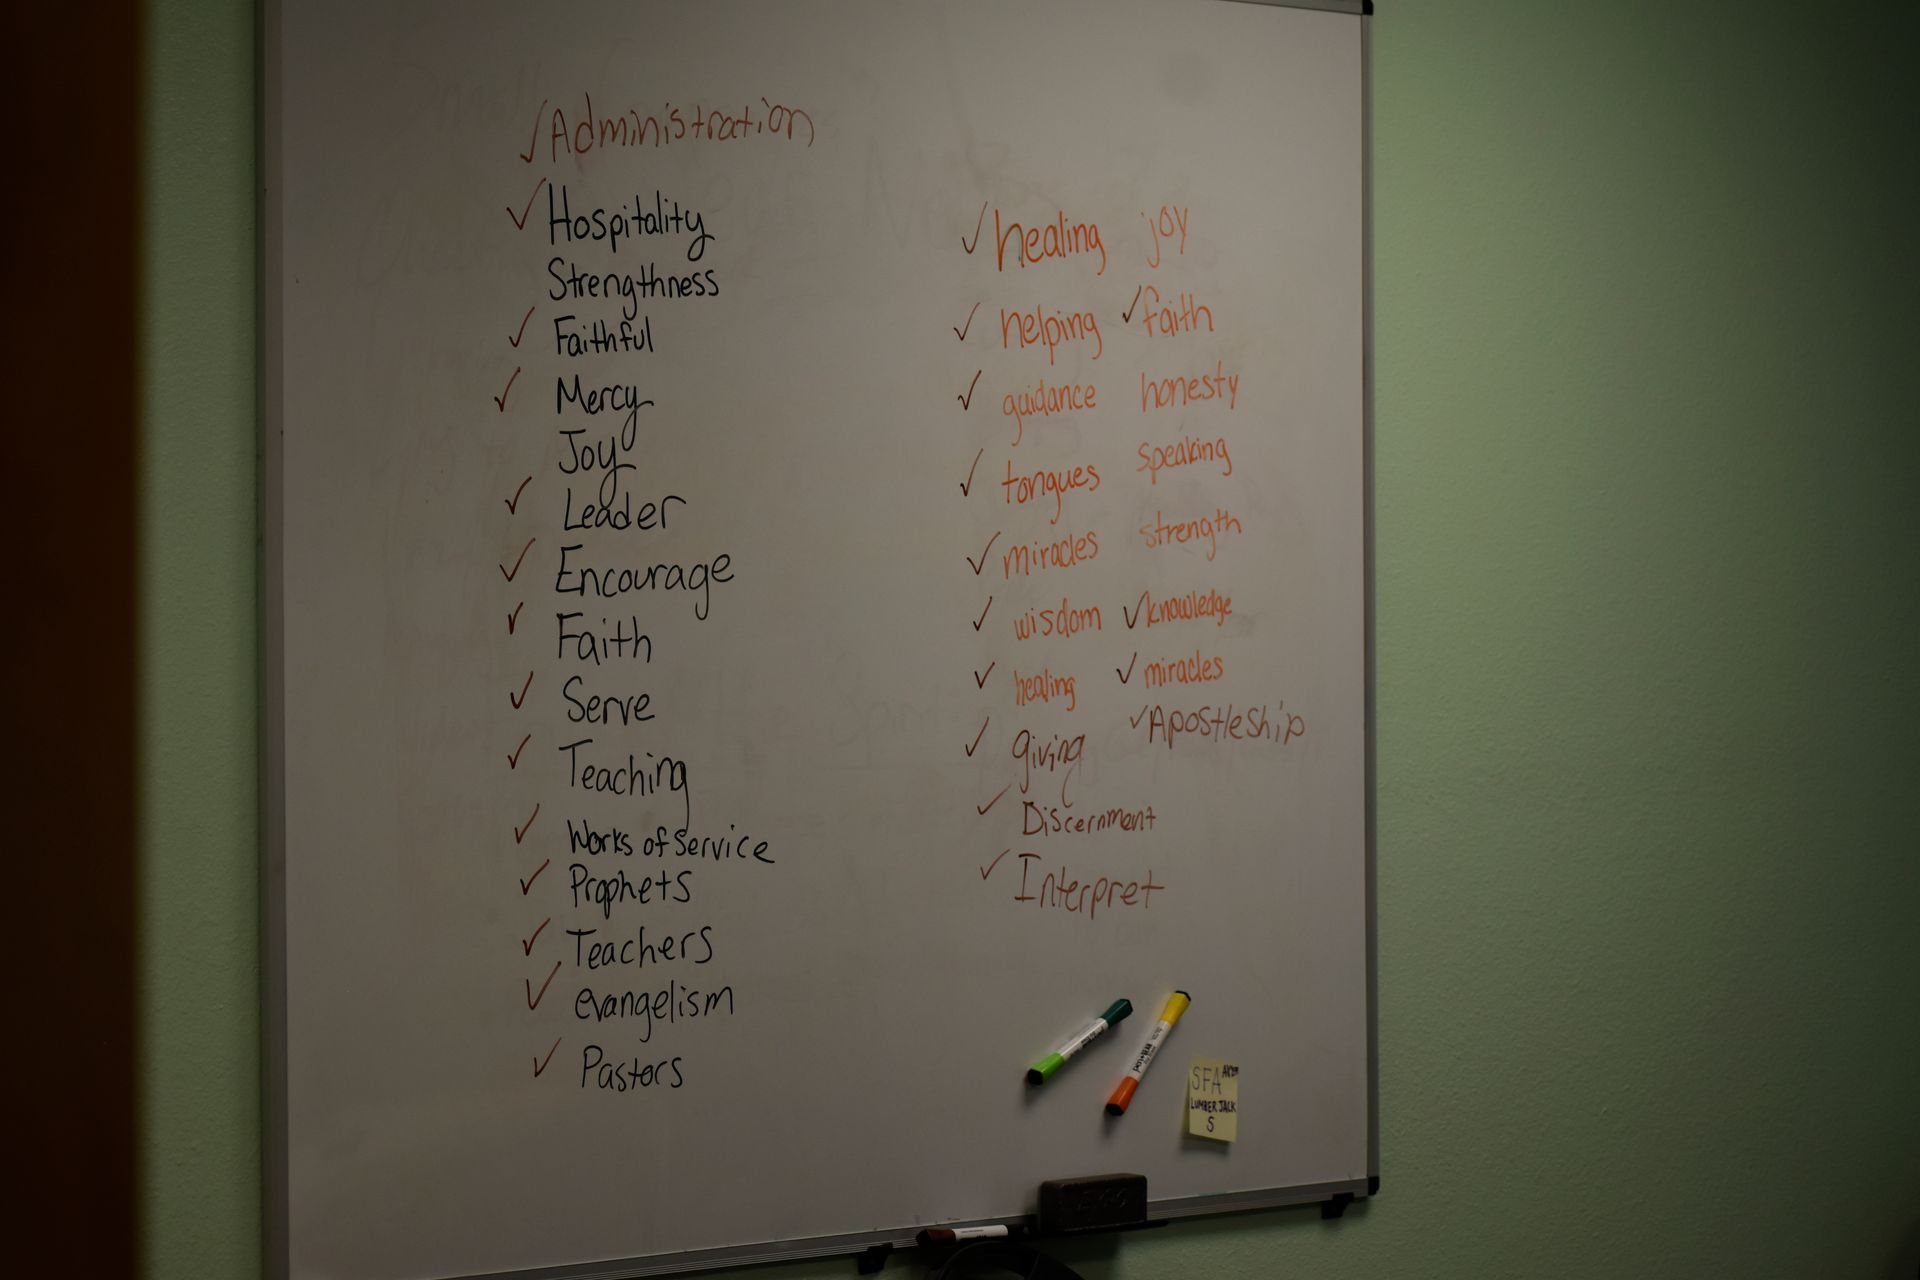 ✓Administration
✓Hospitality
Strengthness
✓Faithful
✓Mercy
Joy
✓Leader
✓Encourage
✓Faith
✓Serve
✓Teaching
✓Works of Service
✓Prophets
✓Teachers
✓evangelism
✓Pastors
✓healing joy
✓helping ✓faith
✓guidance honesty
✓tongues speaking
✓miracles strength
✓wisdom ✓knowledge
✓healing ✓miracles
✓giving ✓Apostleship
✓Discernment
✓Interpret
SFA
LUMBERJACK
S